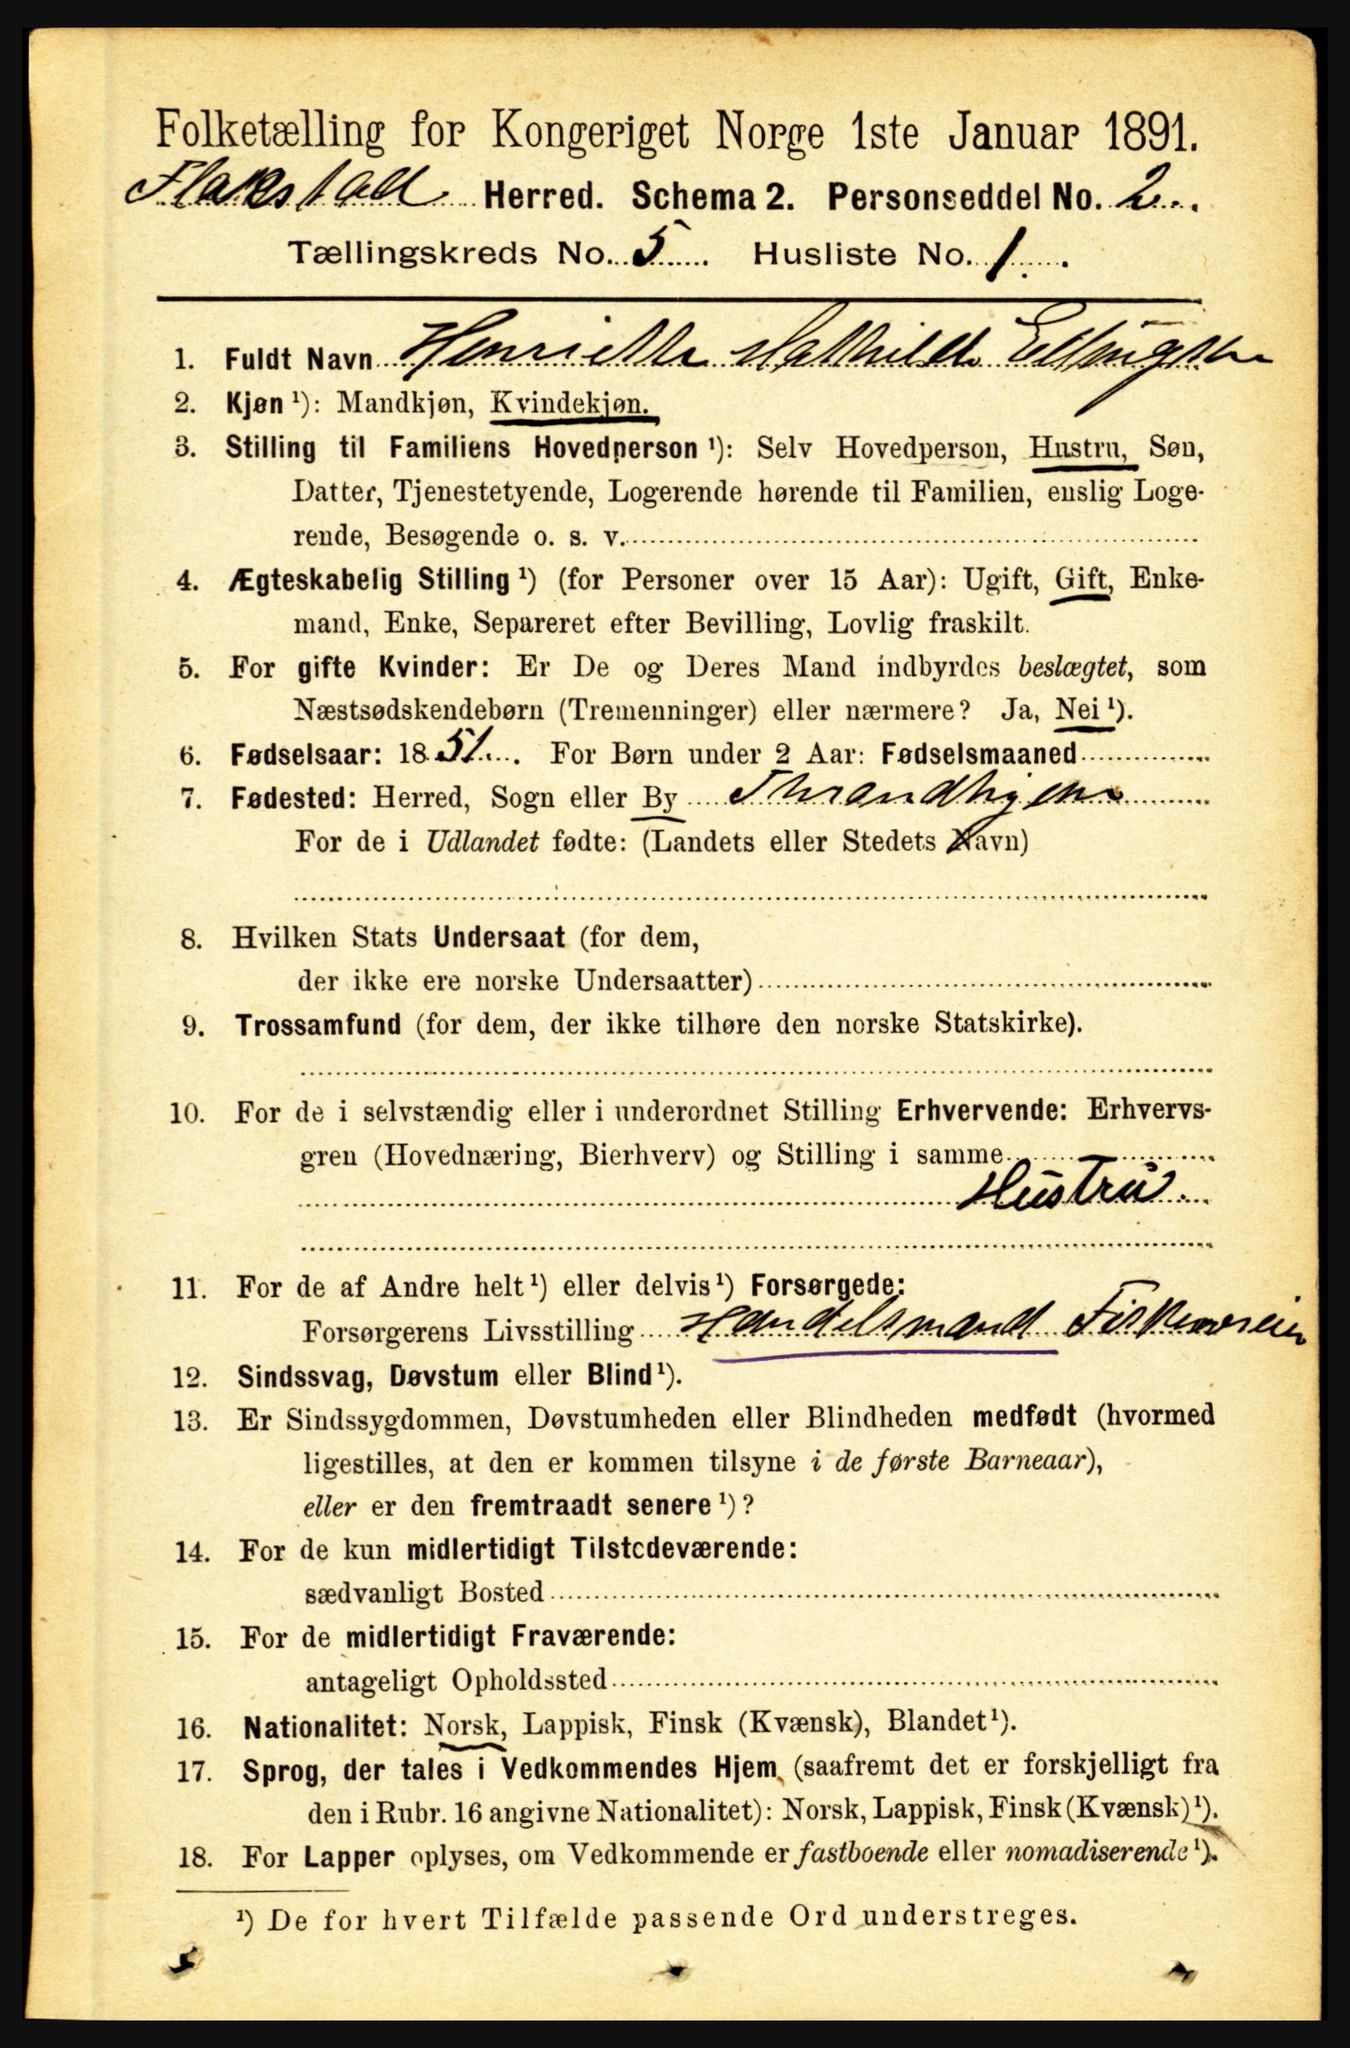 Folketælling for Kongeriget Norge 1ste Januar 1891.
Flakstad Herred. Schema 2. Personseddel No. 2
Tællingskreds No. 5 Husliste No. 1
1. Fuldt Navn Henriette Mathilde Ellingsen
2. Kjøn ¹): Mandkjøn, Kvindekjøn.
3. Stilling til Familiens Hovedperson ¹): Selv Hovedperson, Hustru, Søn,
Datter, Tjenestetyende, Logerende hørende til Familien, enslig Loge-
rende, Besøgende o. s. v.
4. Ægteskabelig Stilling ¹) (for Personer over 15 Aar): Ugift, Gift, Enke-
mand, Enke, Separeret efter Bevilling, Lovlig fraskilt.
5. For gifte Kvinder: Er De og Deres Mand indbyrdes beslægtet, som
Næstsødskendebørn (Tremenninger) eller nærmere? Ja, Nei ¹).
6. Fødselsaar: 1851. For Børn under 2 Aar: Fødselsmaaned
7. Fødested: Herred, Sogn eller By Thrandhjem
For de i Udlandet fødte: (Landets eller Stedets Navn)
8. Hvilken Stats Undersaat (for dem,
der ikke ere norske Undersaatter)
9. Trossamfund (for dem, der ikke tilhøre den norske Statskirke).
10. For de i selvstændig eller i underordnet Stilling Erhvervende: Erhvervs-
gren (Hovednæring, Bierhverv) og Stilling i samme
Hustru.
11. For de af Andre helt ¹) eller delvis ¹) Forsørgede:
Forsørgerens Livsstilling Handelsmand Fiskeværeier
12. Sindssvag, Døvstum eller Blind ¹).
13. Er Sindssygdommen, Døvstumheden eller Blindheden medfødt (hvormed
ligestilles, at den er kommen tilsyne i de første Barneaar),
eller er den fremtraadt senere ¹)?
14. For de kun midlertidigt Tilstedeværende:
sædvanligt Bosted
15. For de midlertidigt Fraværende:
antageligt Opholdssted
16. Nationalitet: Norsk, Lappisk, Finsk (Kvænsk), Blandet ¹).
17. Sprog, der tales i Vedkommendes Hjem (saafremt det er forskjelligt fra
den i Rubr. 16 angivne Nationalitet): Norsk, Lappisk, Finsk (Kvænsk) ¹).
18. For Lapper oplyses, om Vedkommende er fastboende eller nomadiserende ¹).
¹) De for hvert Tilfælde passende Ord understreges.